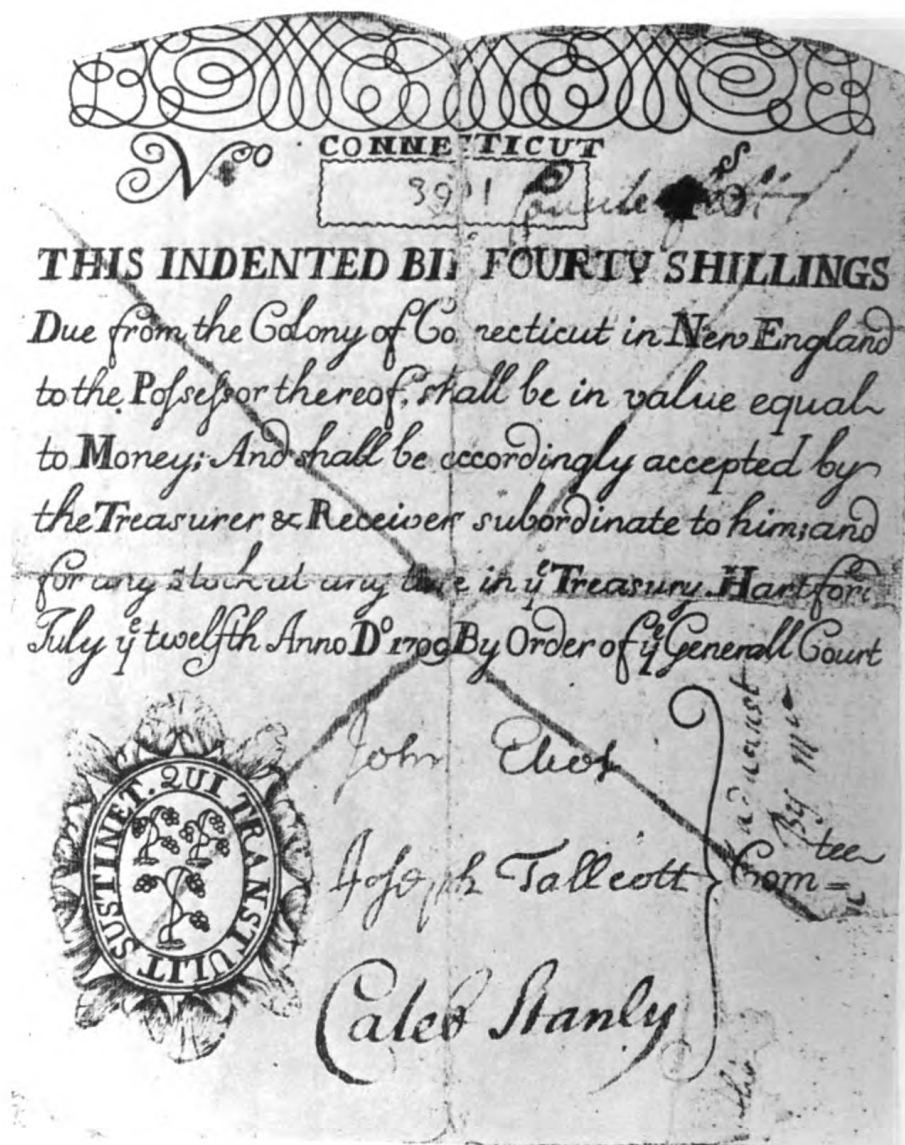 No
CONNECTICUT
3991
THIS INDENTED BIL FOURTY SHILLINGS
Due from the Colony of Co necticut in New England
to the Poſseſsor thereof, shall be in value equal
to Money; And shall be accordingly accepted by
the Treasurer & Receiver subordinate to him; and
for any Stock at any time in yᵉ Treasury. Hartford
July yᵉ twelfth Anno Dᵒ 1709 By Order of yᵉ Generall Court
SUSTINET. QUI TRANSTULIT
John Eliot
Joseph Tallcott
Com=tee
Caleb Stanly
By me